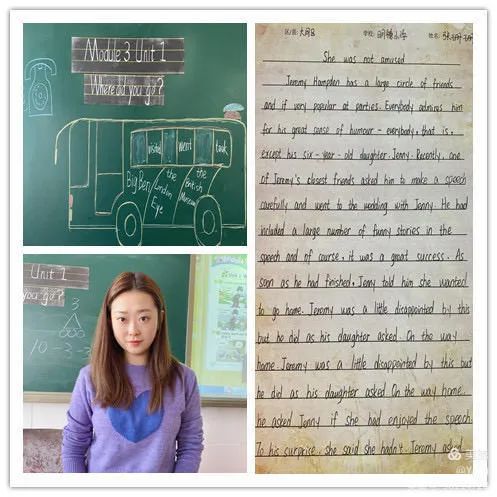 Module 3 Unit 1
Where did you go?
visited
went
took
Big Ben
the London Eye
the British Museum
Unit 1
you go?
3
10-3-3
学校: 明德小学
姓名:
She was not amused
Jeremy Hampden has a large circle of friends
and if very popular at parties. Everybody admires him
for his great sense of humour - everybody, that is,
except his six-year-old daughter. Jenny. Recently, one
of Jeremy's closest friends asked him to make a speech
carefully and went to the wedding with Jenny. He had
included a large number of funny stories in the
speech and of course, it was a great success. As
soon as he had finished, Jenny told him she wanted
to go home. Jeremy was a little disappointed by this
but he did as his daughter asked. On the way
home. Jeremy was a little disappointed by this but
he did as his daughter asked. On the way home.
he asked Jenny if she had enjoyed the speech
To his surprise, she said she hadn't. Jeremy asked